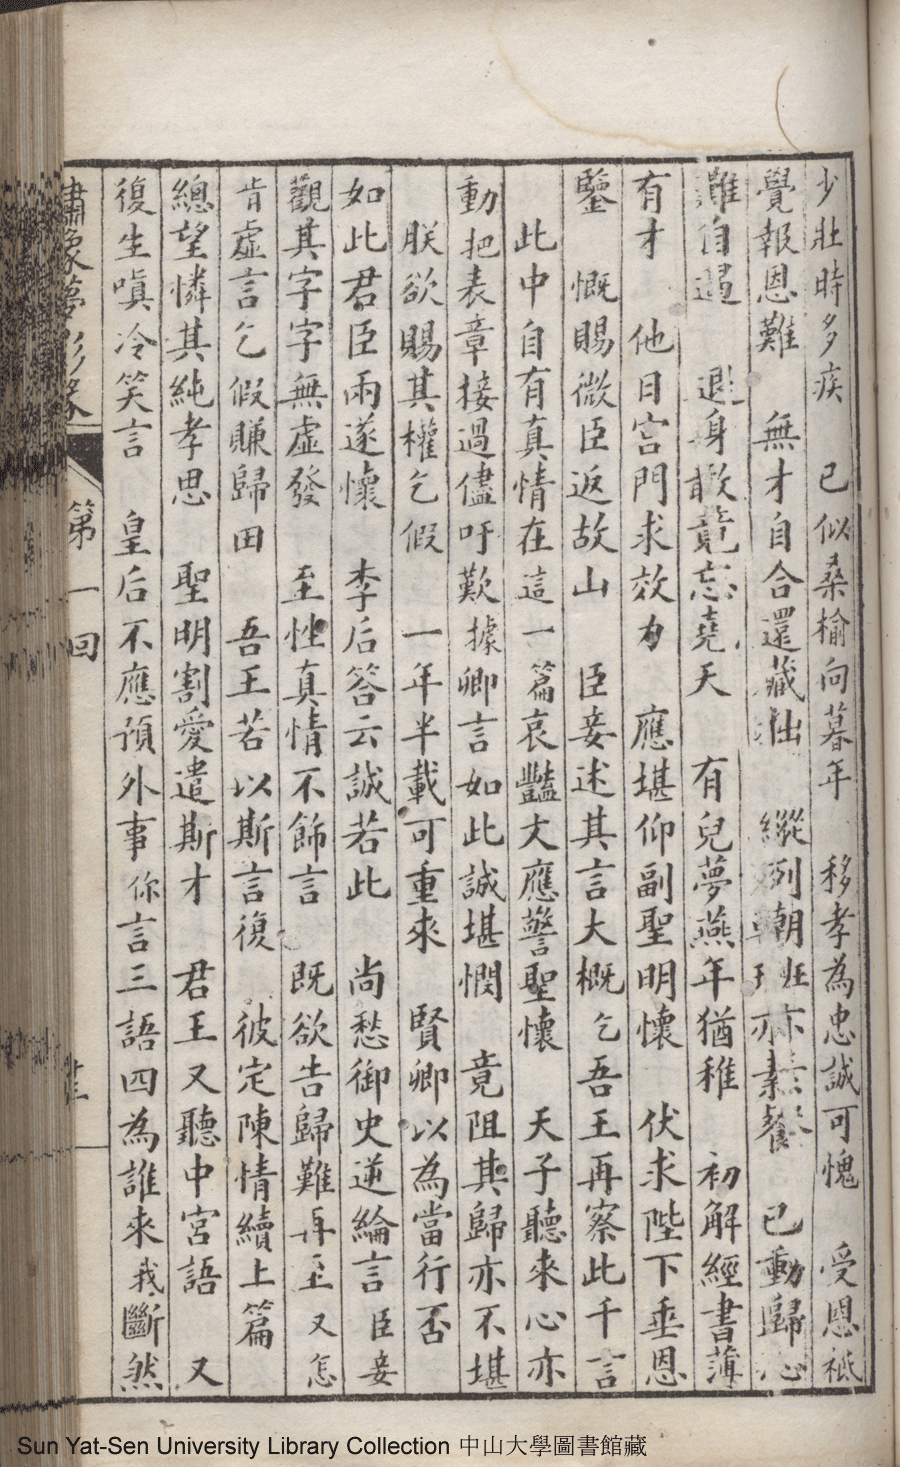 少壯時多疾　已似桑榆向暮年　移孝為忠誠可愧　受恩祗
覺報恩難　無才自合還藏拙　縱列朝班亦素餐　已動歸心
難自遏　退身敢竟忘堯天　有兒夢燕年猶稚　初解經書薄
有才　他日宮門求效力　應堪仰副聖明懷　伏求陛下垂恩
鑒　慨賜微臣返故山　臣妾述其言大概　乞吾王再察此千言
此中自有真情在這一篇哀豔文應警聖懷　天子聽來心亦
動把表章接過儘吁歎據卿言如此誠堪憫　竟阻其歸亦不堪
朕欲賜其權乞假　一年半載可重來　賢卿以為當行否
如此君臣兩遂懷　李后答云誠若此　尚愁御史逆綸言臣妾
觀其字字無虛發　至性真情不飾言　既欲告歸難再至又怎
肯虛言乞假賺歸田　吾王若以斯言復　彼定陳情續上篇
總望憐其純孝思　聖明割愛遣斯才　君王又聽中宮語　又
復生嗔冷笑言　皇后不應預外事你言三語四為誰來我斷然
夢影緣　第一回
Sun Yat-Sen University Library Collection 中山大學圖書館藏